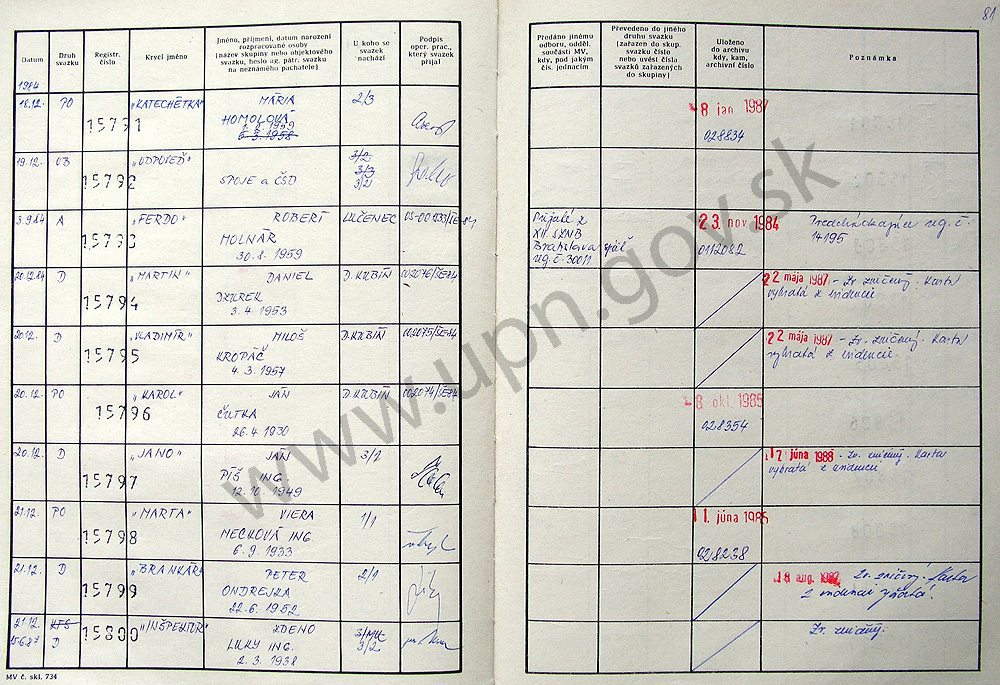 81
Datum
Druh svazku
Registr. číslo
Krycí jméno
Jméno, příjmení, datum narození
rozpracované osoby
(název skupiny nebo objektového
svazku, heslo ag. pátr. svazku
na neznámého pachatele)
U koho se
svazek
nachází
Podpis
oper. prac.,
který svazek
přijal
Předáno jinému
odboru, odděl.
součásti MV,
kdy, pod jakým
čís. jednacím
Převedeno do jiného
druhu svazku
(zařazen do skup.
svazku číslo
nebo uvést čísla
svazků zařazených
do skupiny)
Uloženo
do archivu
kdy, kam,
archivní číslo
Poznámka
1984
18.12. PO 15791 „KATECHÉTKA" MÁRIA 2/3
HOMOLOVÁ
6.3.1958
8 jan 1987
028834
19.12. OB 15792 „ODPOVEĎ" 3/2
SPOJE a ČSD 3/3
3/2
3.9.84 A 15793 „FERDO" RÓBERT LUČENEC
MOLNÁR
30.8.1959
Prijaté z
XII. S ZNB
Bratislava späť
reg.č. 30011
23. nov 1984
0112082
Predchádzajúce reg. č.
14195
20.12.84 D 15794 „MARTIN" DANIEL D.KUBÍN 002076/ŠE-84
3.4.1953
22 mája 1987 - Zv. zničený. Karta
vybratá z evidencie
20.12. D 15795 „VLADIMÍR" MILOŠ D.KUBÍN 002075/ŠE-84
KROPÁČ
4.3.1957
22 mája 1987 - Zv. zničený. Karta
vybratá z evidencie
20.12. PO 15796 „KAROL" JÁN D.KUBÍN 002074/ŠE-84
ČUTKA
26.4.1930
8 okt. 1985
028354
20.12. D 15797 „JANO" JÁN 3/2
PÍŠ ING.
12.10.1949
17 júna 1988 - Zv. zničený. Karta
vybratá z evidencie
21.12. PO 15798 „MARTA" VIERA 1/1
MECKOVÁ ING.
6.9.1933
11. júna 1985
028238
21.12. D 15799 „BRANKÁR" PETER 2/1
ONDREJKA
22.6.1952
18 aug. Zv. zničený. Karta
z evidencie vyňatá.
21.12. 15800 „INŠPEKTOR" ZDENO
15.6.87 D ING. 3/2
2.3.1938
Zv. zničený.
MV č. skl. 734
www.upn.gov.sk